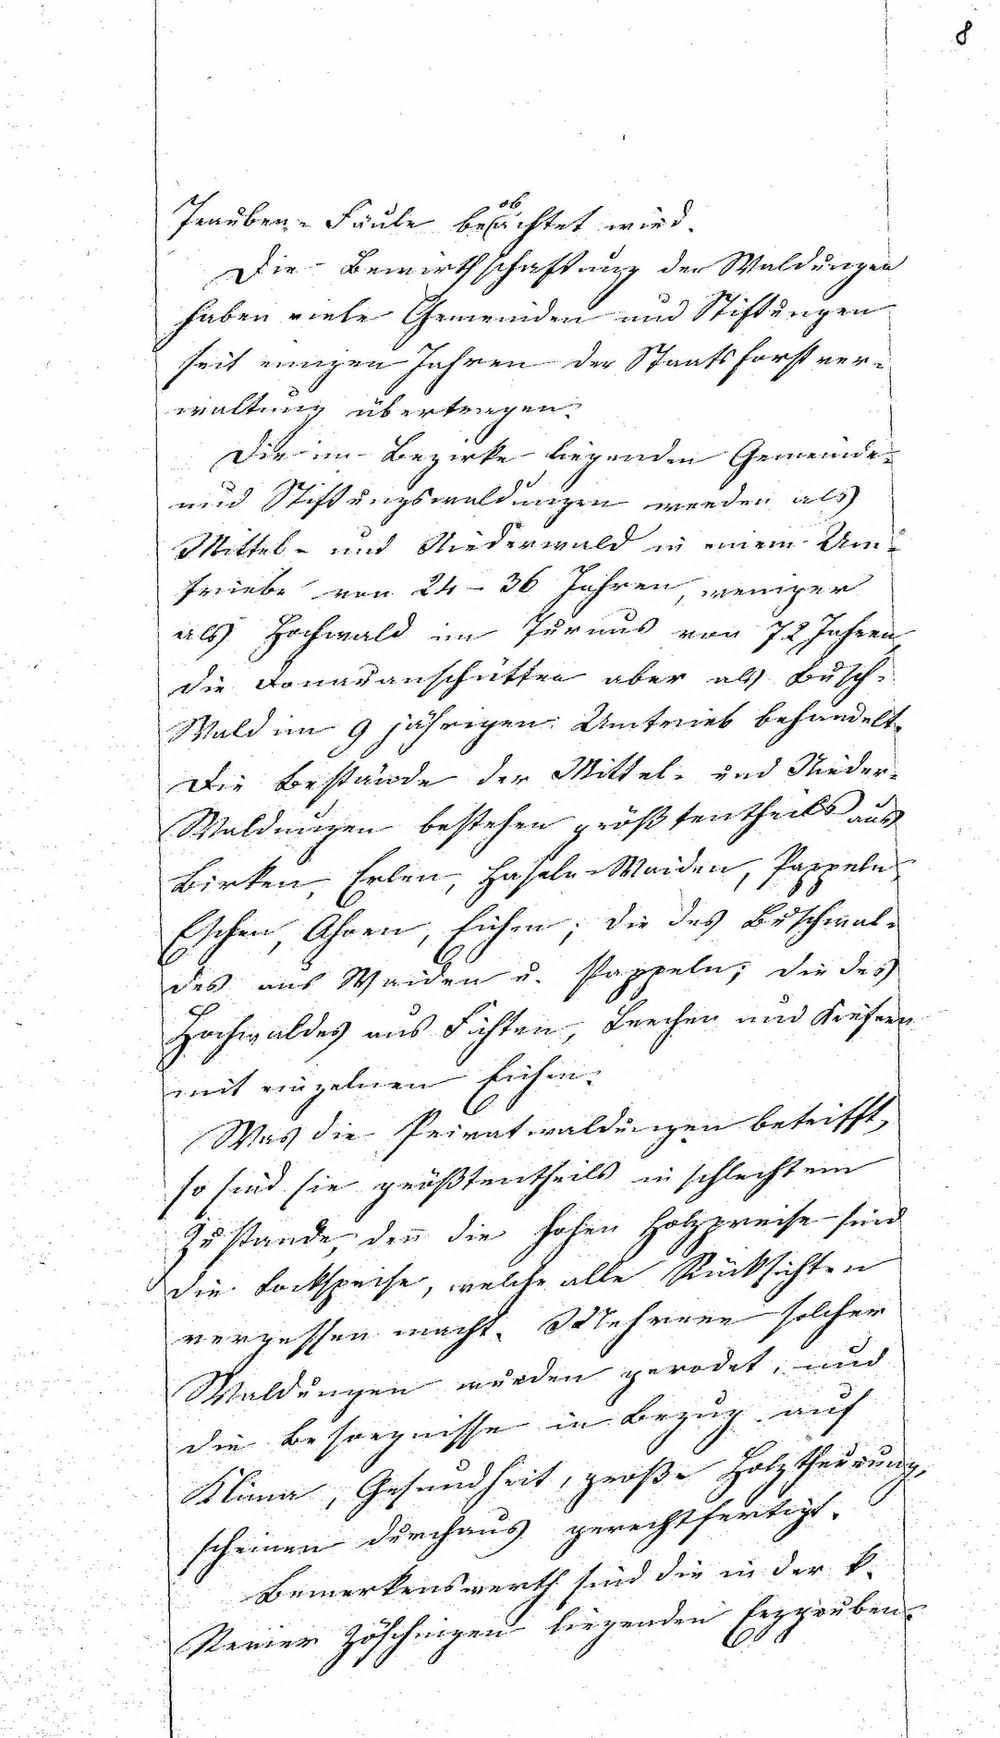 8
ob
Trauben-Fäule beachtet wird.
Die Bewirthschaftung der Waldungen
haben viele Gemeinden und Stiftungen
seit einigen Jahren der Staatsforstver-
waltung übertragen.
Die im Bezirke liegenden Gemeinde-
und Stiftungswaldungen werden als
Mittel- und Niederwald in einem Um-
triebe von 24 - 36 Jahren, weniger
als Hochwald im Turnus von 72 Jahren,
die Donauanschütten aber als Busch-
Wald im 9 jährigen Umtrieb behandelt.
Die Bestände der Mittel- und Nieder-
Waldungen bestehen größtentheils aus
Birken, Erlen, Haseln-Waiden, Pappeln,
Eschen, Ahorn, Eichen; die des Buschwal-
des aus Waiden u. Pappeln; die des
Hochwaldes aus Fichten, Lerchen und Kiefern
mit einzelnen Eichen.
Was die Privatwaldungen betrifft,
so sind sie größtentheils in schlechtem
Zustande, den̅ die hohen Holzpreise sind
die Lockspeise, welche alle Rücksichten
vergessen macht. Mehrere solcher
Waldungen wurden gerodet, und
die Besorgnisse in Bezug auf
Klima, Gesundheit, große Holztheurung,
scheinen durchaus gerechtfertigt.
Bemerkenswerth sind die in der k.
Revier Zöschingen liegenden Erzgruben.